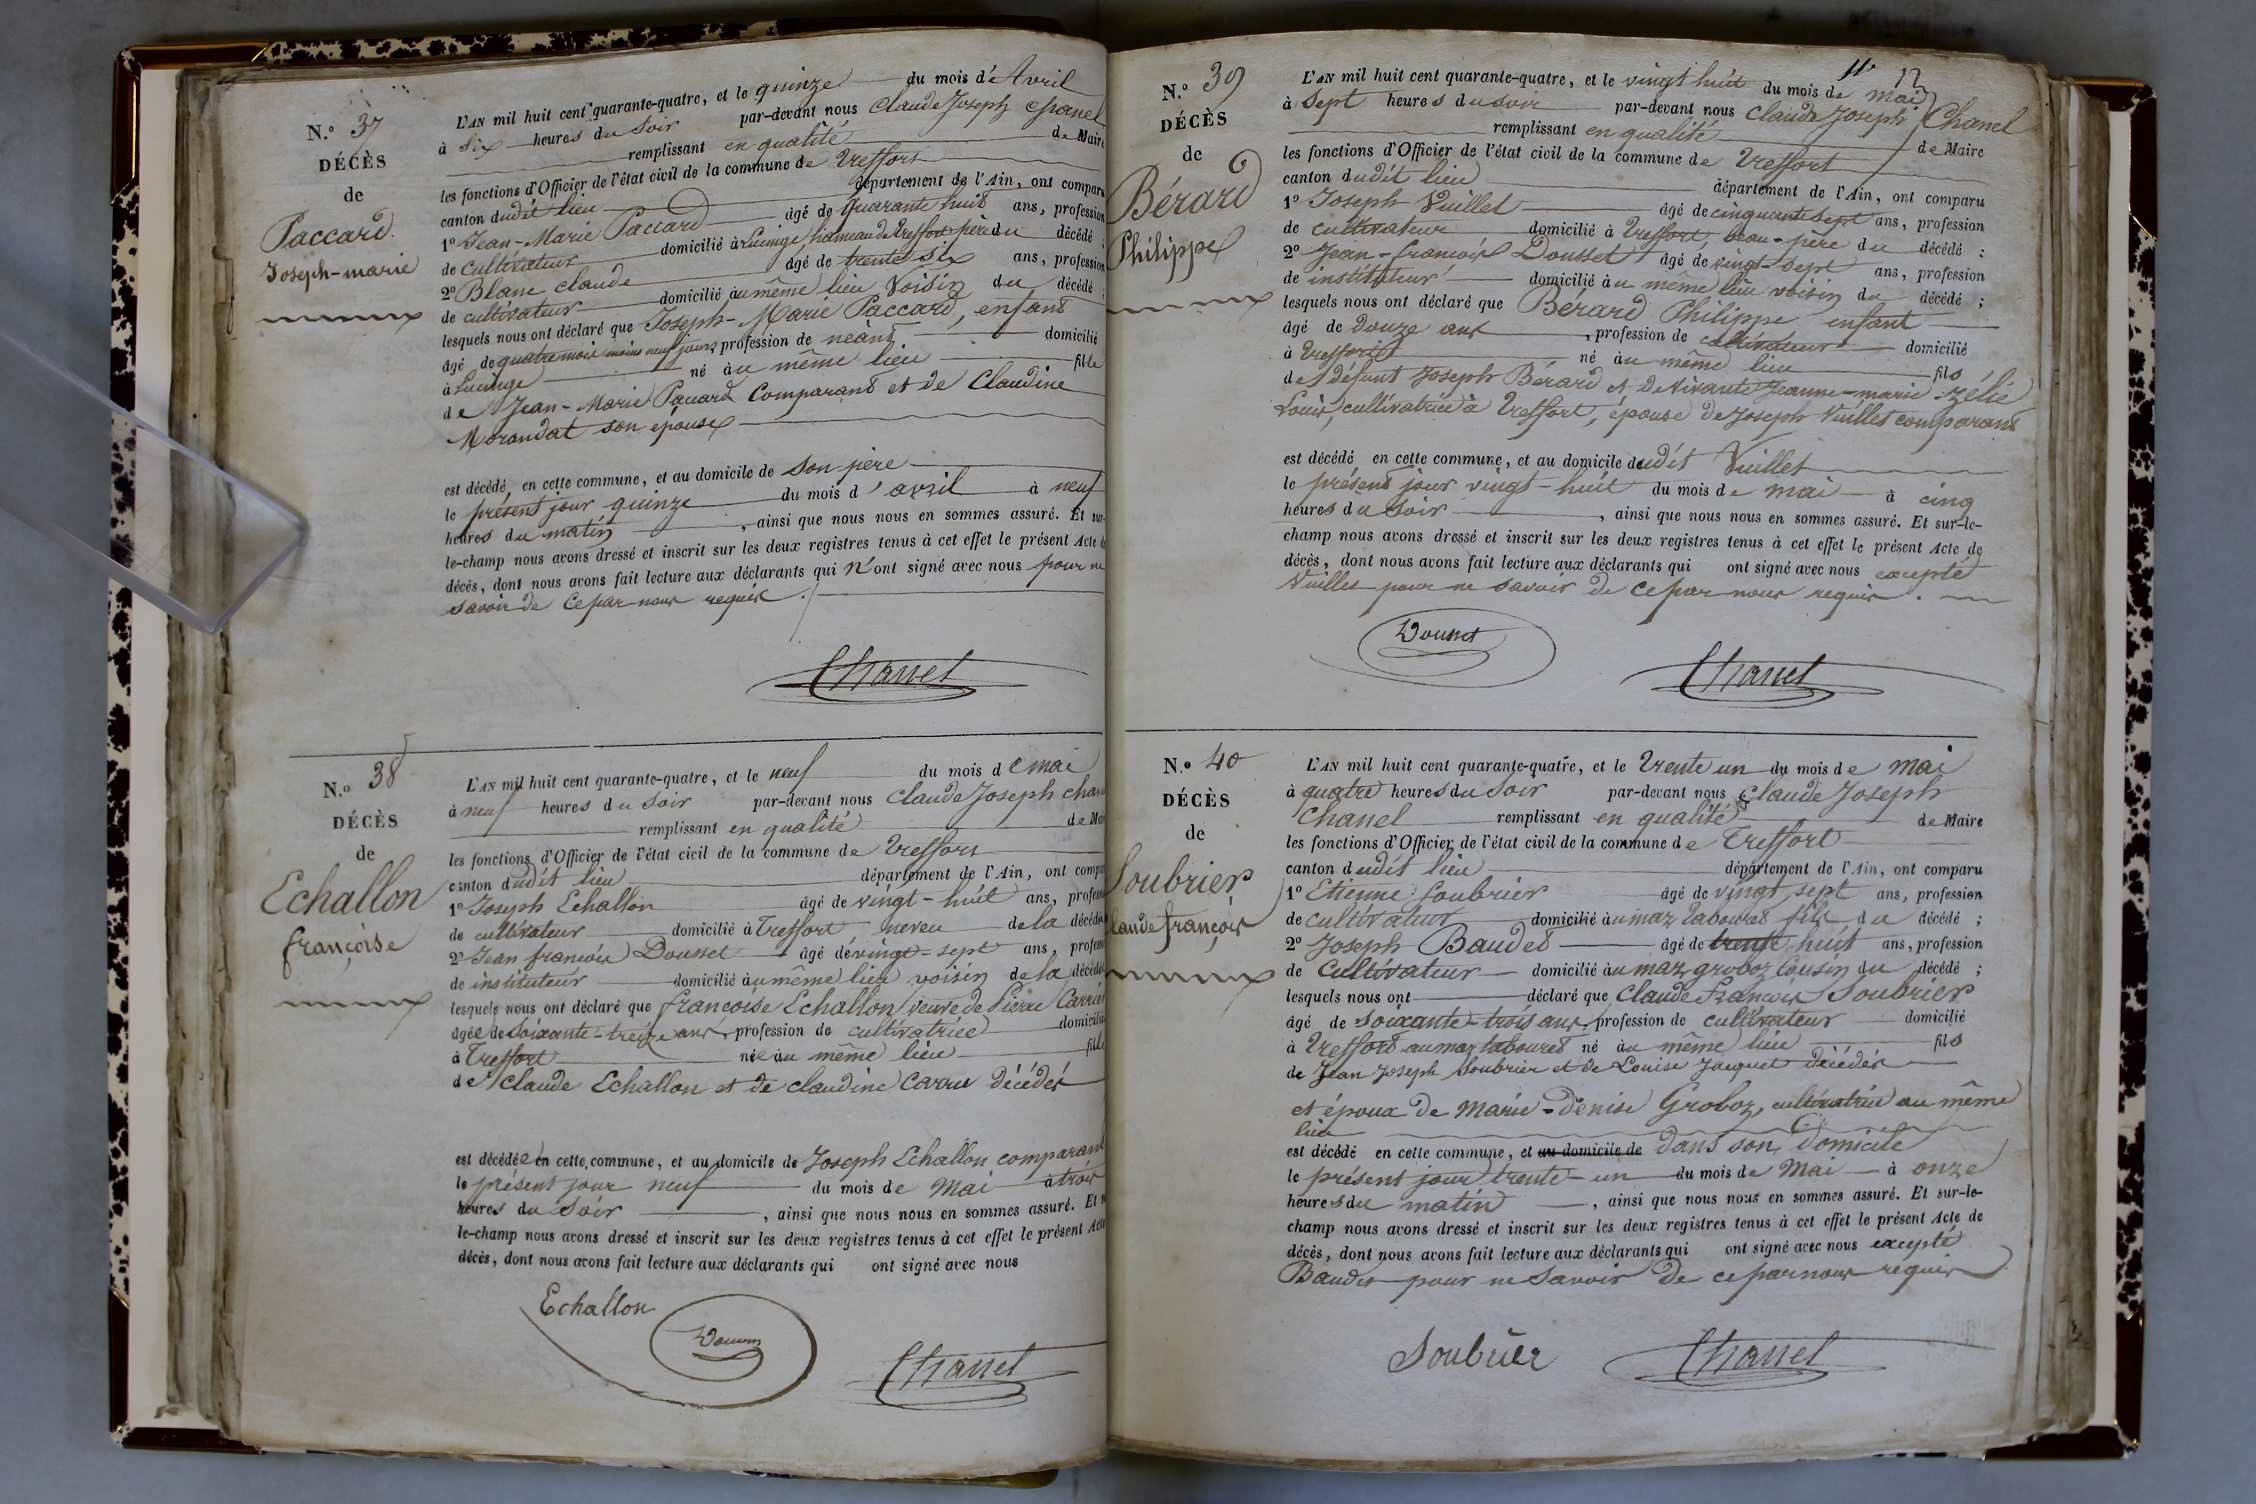 N.° 37
DÉCÈS
de
Paccard
Joseph-marie
L'AN mil huit cent quarante-quatre, et le quinze du mois d'Avril
à six heures du soir par-devant nous Claude Joseph Chanel
remplissant en qualité de Maire
les fonctions d'Officier de l'état civil de la commune de Treffort
canton dudit lieu département de l'Ain, ont comparu
1° Jean-Marie Paccard âgé de quarante huit ans, profession
de cultivateur domicilié à Lucinge hameau de Treffort père du décédé ;
2° Blanc Claude âgé de trente six ans, profession
de cultivateur domicilié au même lieu Voisin du décédé ;
lesquels nous ont déclaré que Joseph-Marie Paccard, enfant
âgé de quatre mois moins neuf jours profession de néant domicilié
à Lucinge né au même lieu fils
de Jean-Marie Paccard Comparant et de Claudine
Morandat son épouse
est décédé en cette commune, et au domicile de son père
le présent jour quinze du mois d'avril à neuf
heures du matin, ainsi que nous nous en sommes assuré. Et sur-
le-champ nous avons dressé et inscrit sur les deux registres tenus à cet effet le présent Acte de
décès, dont nous avons fait lecture aux déclarants qui n'ont signé avec nous pour ne
savoir de ce par nous requis.
Chanel
N.° 38
DÉCÈS
de
Echallon
françoise
L'AN mil huit cent quarante-quatre, et le neuf du mois de mai
à neuf heures du soir par-devant nous Claude Joseph Chanel
remplissant en qualité de Maire
les fonctions d'Officier de l'état civil de la commune de Treffort
canton dudit lieu département de l'Ain, ont comparu
1° Joseph Echallon âgé de vingt-huit ans, profession
de cultivateur domicilié à Treffort neveu de la décédée
2° Jean françois Dousset âgé de vingt-sept ans, profession
de instituteur domicilié au même lieu voisin de la décédée
lesquels nous ont déclaré que françoise Echallon veuve de Pierre Carrier
âgée de soixante-treize ans, profession de cultivatrice domiciliée
à Treffort née au même lieu fille
de Claude Echallon et de claudine Carru décédés
est décédée en cette commune, et au domicile de Joseph Echallon comparant
le présent jour neuf du mois de Mai à trois
heures du soir, ainsi que nous nous en sommes assuré. Et sur-
le-champ nous avons dressé et inscrit sur les deux registres tenus à cet effet le présent Acte
décès, dont nous avons fait lecture aux déclarants qui ont signé avec nous
Echallon
Dousset
Chanel
11 12
N.° 39
DÉCÈS
de
Bérard
Philippe
L'AN mil huit cent quarante-quatre, et le vingt huit du mois de mai
à sept heures du soir par-devant nous Claude Joseph Chanel
remplissant en qualité de Maire
les fonctions d'Officier de l'état civil de la commune de Treffort
canton dudit lieu département de l'Ain, ont comparu
1° Joseph Vuillet âgé de cinquante sept ans, profession
de cultivateur domicilié à Treffort, beau-père du décédé :
2° Jean-francois Dousset âgé de vingt-sept ans, profession
de instituteur domicilié au même lieu voisin du décédé ;
lesquels nous ont déclaré que Bérard Philippe enfant
âgé de douze ans, profession de cultivateur domicilié
à Treffort né au même lieu fils
de défunt Joseph Bérard et de vivante Jeanne-marie-zélie
Louis, cultivatrice à Treffort, épouse de Joseph Vuillet comparant
est décédé en cette commune, et au domicile dudit Vuillet
le présent jour vingt-huit du mois de mai à cinq
heures du soir, ainsi que nous nous en sommes assuré. Et sur-le-
champ nous avons dressé et inscrit sur les deux registres tenus à cet effet le présent Acte de
décès, dont nous avons fait lecture aux déclarants qui ont signé avec nous excepté
Vuillet pour ne savoir de ce par nous requis.
Dousset
Chanel
N.° 40
DÉCÈS
de
Soubrier
Claude françois
L'AN mil huit cent quarante-quatre, et le trente un du mois de mai
à quatre heures du soir par-devant nous Claude Joseph
Chanel remplissant en qualité de Maire
les fonctions d'Officier de l'état civil de la commune de Treffort
canton dudit lieu département de l'Ain, ont comparu
1° Etienne Soubrier âgé de vingt sept ans, profession
de cultivateur domicilié au maz labouret fils du décédé ;
2° Joseph Baudet âgé de trente huit ans, profession
de cultivateur domicilié au maz groboz Cousin du décédé ;
lesquels nous ont déclaré que Claude François Soubrier
âgé de soixante-trois ans, profession de cultivateur domicilié
à Treffort au maz labouret né au même lieu fils
de Jean Joseph Soubrier et de Louise Jacquet décédés
et époux de Marie-Dénise Groboz, cultivatrice au même
lieu
est décédé en cette commune, et au domicile de dans son domicile
le présent jour trente-un du mois de Mai à onze
heures du matin, ainsi que nous nous en sommes assuré. Et sur-le-
champ nous avons dressé et inscrit sur les deux registres tenus à cet effet le présent Acte de
décès, dont nous avons fait lecture aux déclarants qui ont signé avec nous excepté
Baudet pour ne savoir de ce par nous requis
Soubrier
Chanel